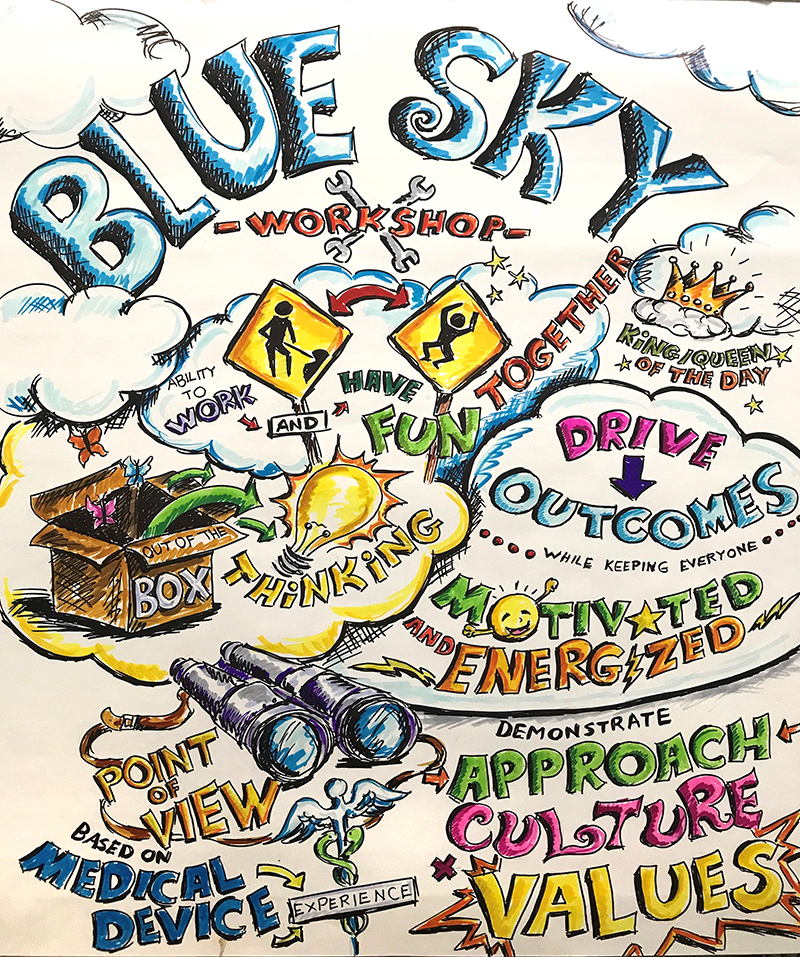 BLUE SKY
-WORKSHOP-
ABILITY
TO
WORK
AND
HAVE
FUN
TOGETHER
KING/QUEEN
OF THE DAY
OUT OF THE
BOX
THINKING
DRIVE
OUTCOMES
WHILE KEEPING EVERYONE
MOTIVATED
AND
ENERGIZED
POINT
OF
VIEW
BASED ON
MEDICAL
DEVICE
EXPERIENCE
DEMONSTRATE
APPROACH
CULTURE
VALUES